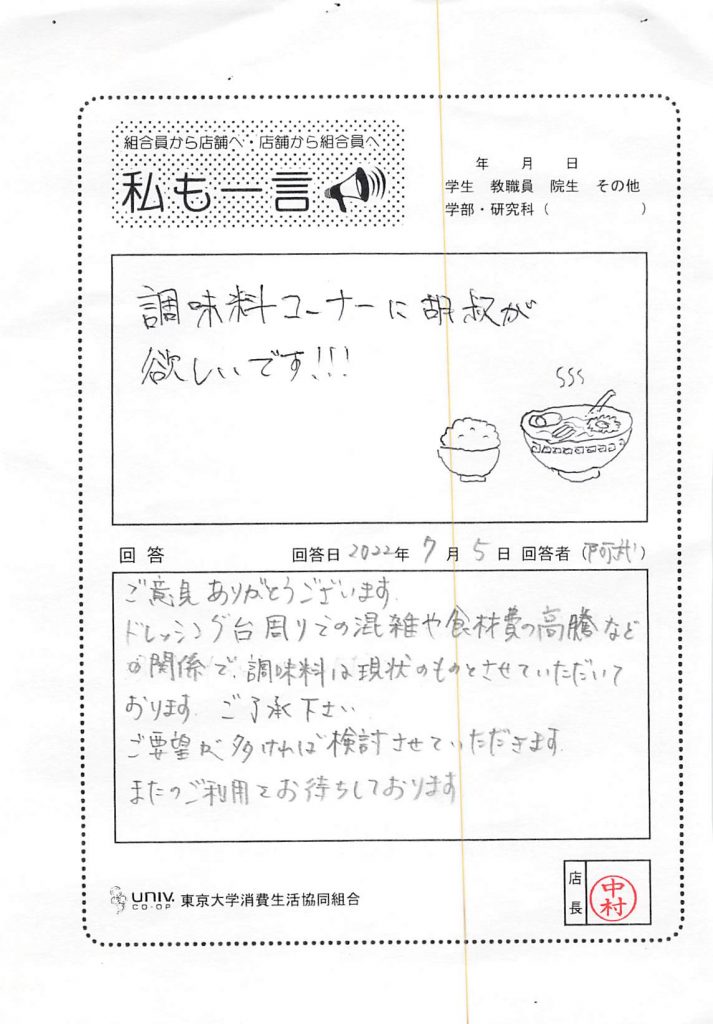 組合員から店舗へ・店舗から組合員へ
私も一言
年 月 日
学生 教職員 院生 その他
学部・研究科( )
調味料コーナーに胡叔が
欲しいです!!!
回答 回答日 2022年 7月 5日 回答者(阿武)
ご意見ありがとうございます.
ドレッシング台周りでの混雑や食材費の高騰など
の関係で、調味料は現状のものとさせていただいて
おります. ご了承下さい.
ご要望が多ければ検討させていただきます.
またのご利用をお待ちしております.
UNIV. CO-OP 東京大学消費生活協同組合
店長
中村